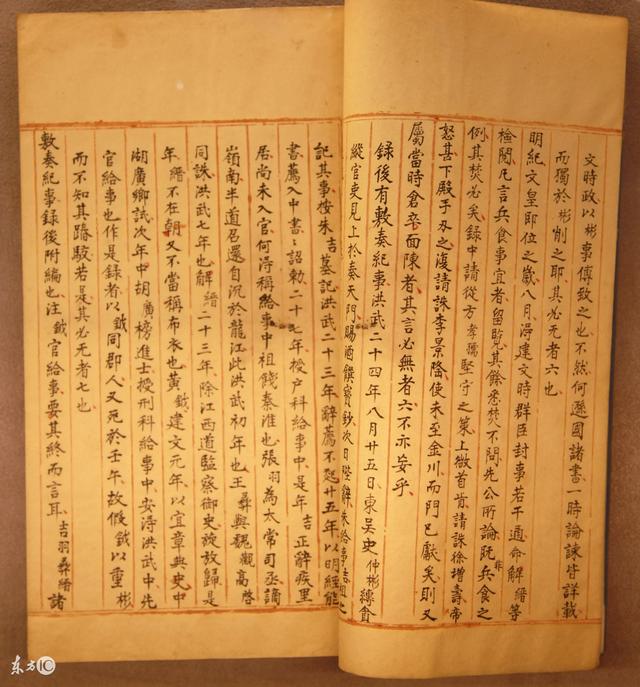 文時政以彬事傅致之也不然何遜國諸書一時論諫皆詳載
而獨於彬削之耶其必无者六也
明紀文皇即位之歲八月淂建文時群臣封事若干通命解縉等
檢閱凡言兵食事宜者留覽其餘悉焚不問先公所論既非兵食之
例其焚必矣錄中請從方孝孺堅守之策上微首肯請誅徐增壽帝
怒甚下殿手刃之復請誅李景隆使未至金川而門已獻矣則又
屬當時倉卒面陳者其言必無者六不亦妄乎
錄後有敷奏紀事洪武二十四年八月廿五日東吴史仲彬縛貪
縱官吏見上於奏天門賜酒饌寳鈔次日陛辭朱給事吉祖之
記其事按朱吉墓記洪武二十三年辭薦不起廿五年以明經能
書薦入中書詔勅二十七年授户科給事中是年吉正辭疾里
居尚未入官何淂稱給事中祖餞秦淮也張羽為太常司丞謫
嶺南半道召還自沉於龍江此洪武初年也王彞與魏觀高啓
同誅洪武七年也解縉二十三年除江西道監察御史旋放歸是
年縉不在朝又不當稱布衣也黄鉞建文元年以宜章典史中
湖廣鄉試次年中胡廣榜進士授刑科給事中安淂洪武中先
官給事也作是錄者以鉞同郡人又死於壬午故假鉞以重彬
而不知其踳駁若是其必无者七也
敷奏紀事錄後附編也注鉞官給事要其終而言耳吉羽彞縉諸
东方IC